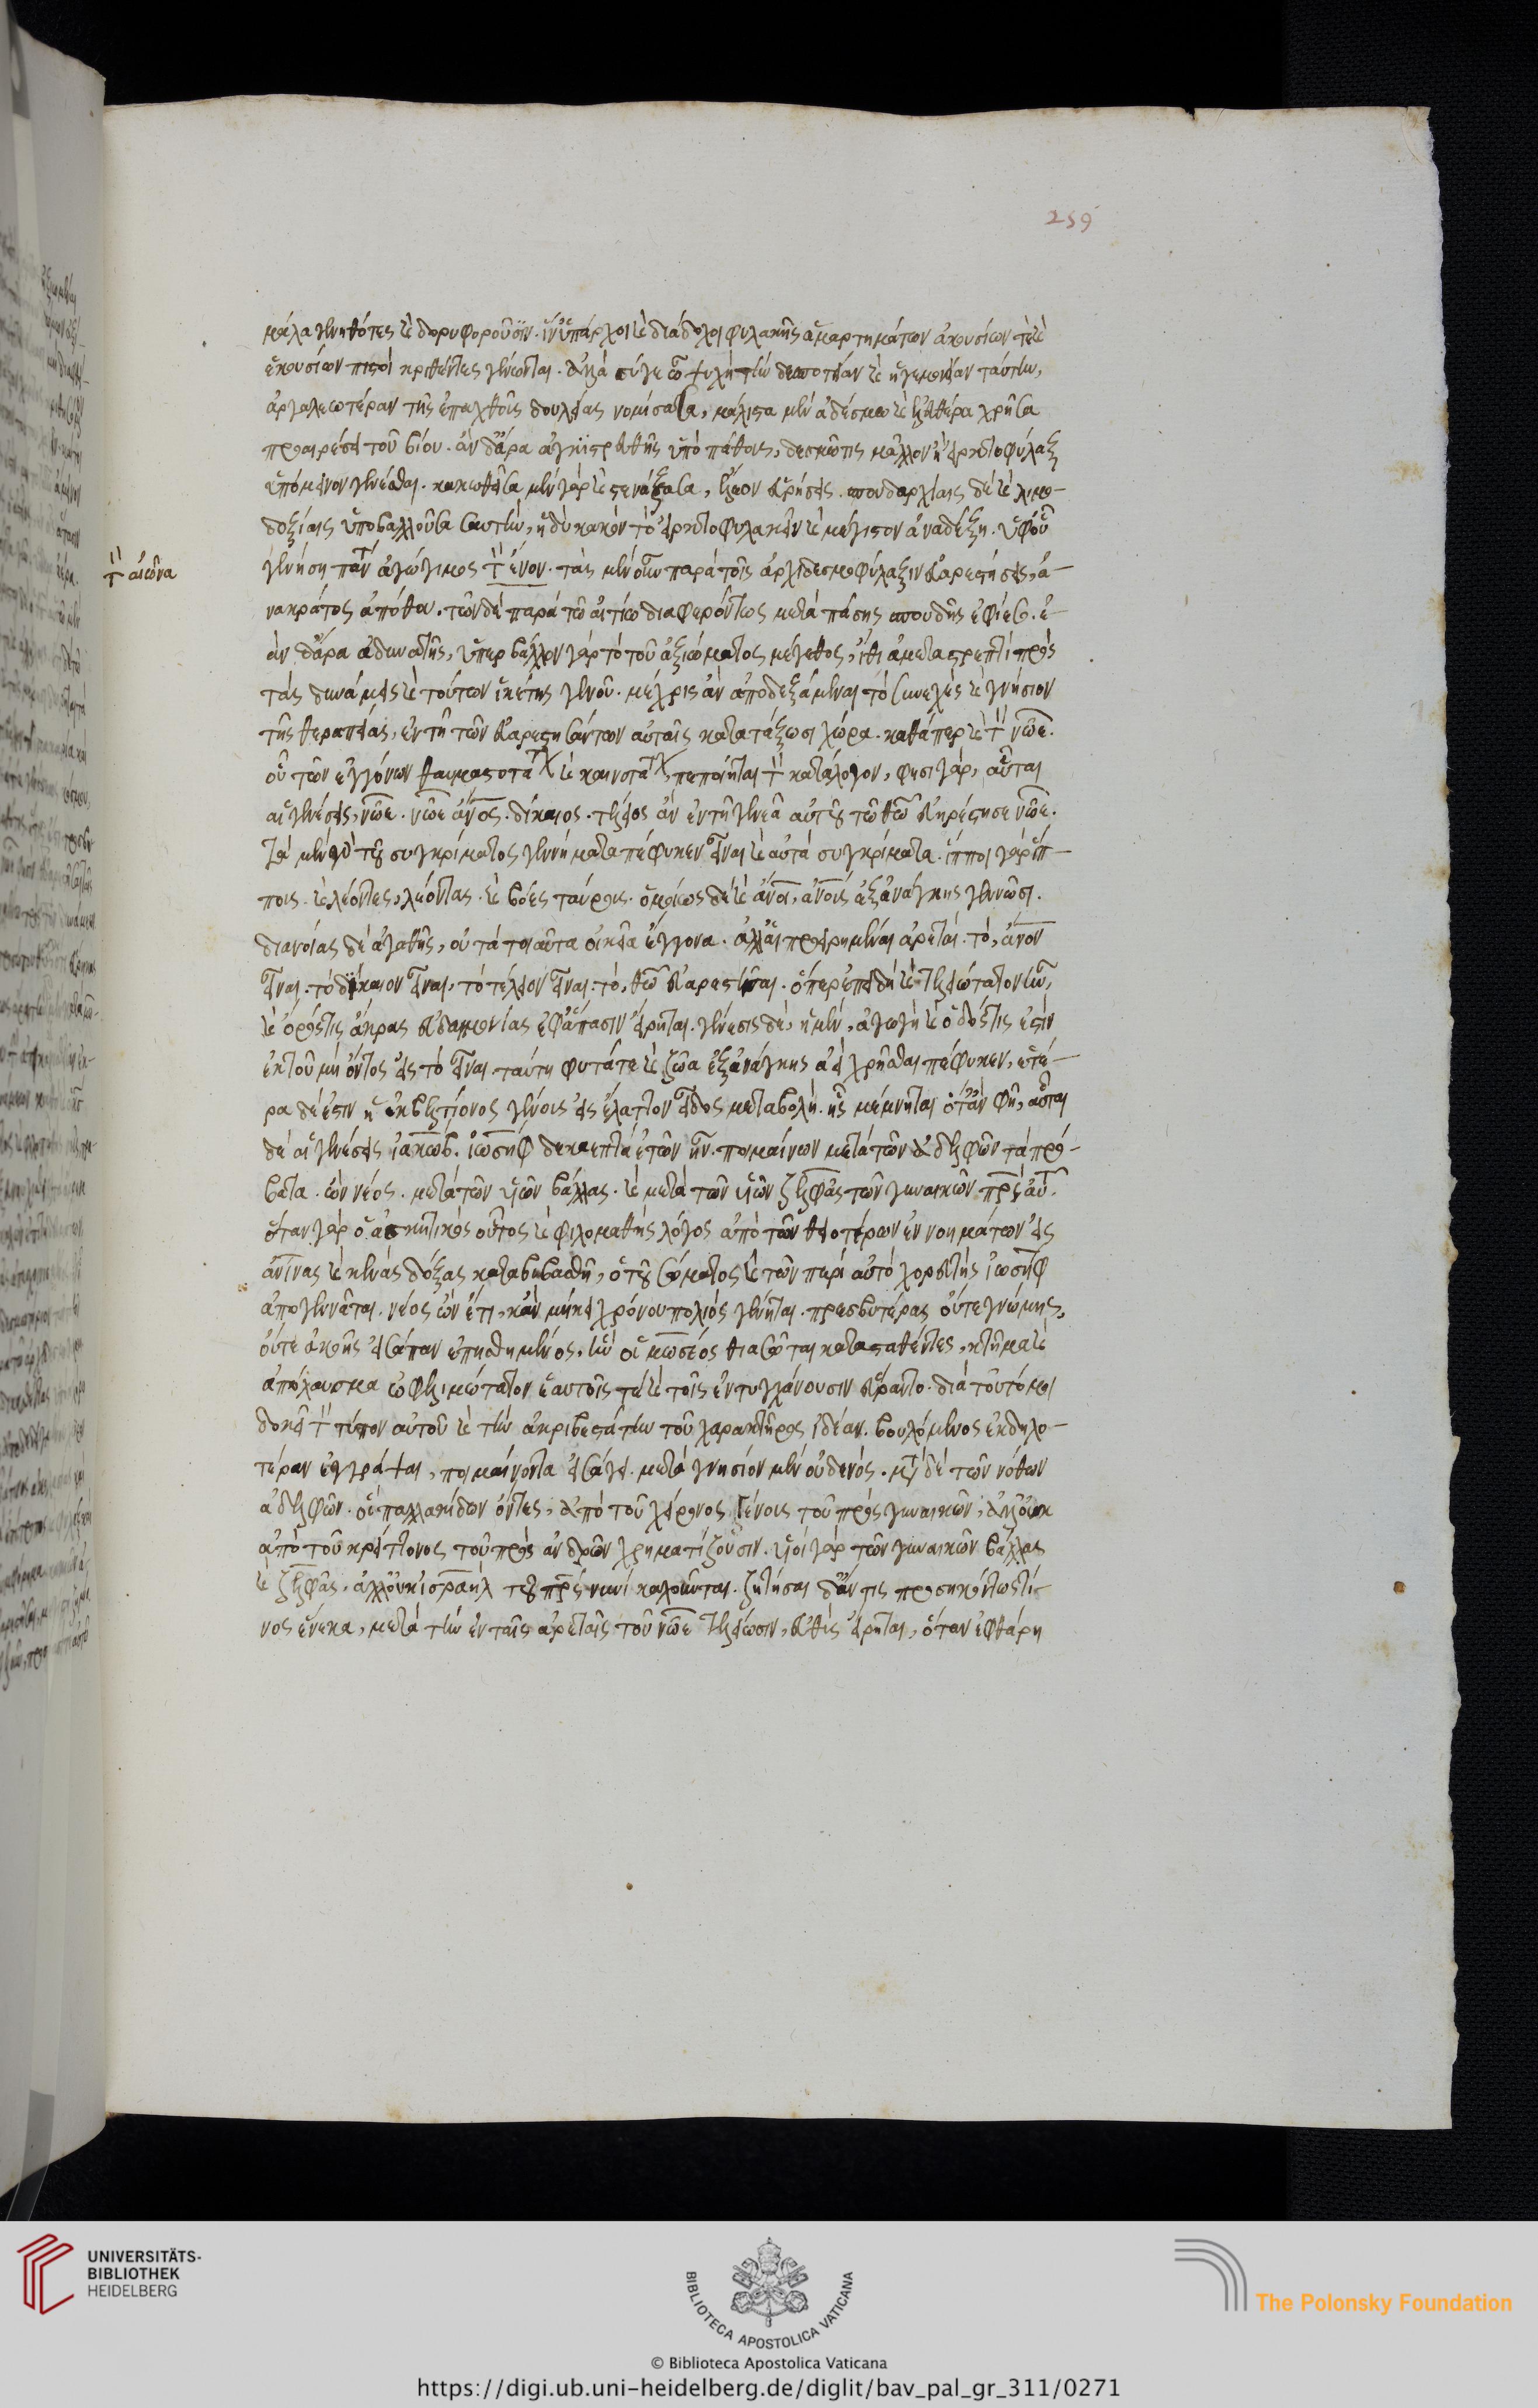 μάλα γεγηθότες καὶ δορυφοροῦσιν. ὧν ὕπαρχοι καὶ διάδοχοι φυλακῆς ἁμαρτημάτων ἀκουσίων τε καὶ
ἑκουσίων πιστοὶ κριθέντες γίνονται. ἀλλὰ σύγε ὦ ψυχὴ τὴν δεσποτείαν καὶ ἡγεμονίαν ταύτην,
ἀργαλεωτέραν τῆς ἐπαχθοῦς δουλείας νομίσασα, μάλιστα μὲν ἀδέσμω καὶ ἐλευθέρα χρῆσαι
προαιρέσει τοῦ βίου. ἂν δἄρα ἀγκιστρευθῆς ὑπὸ πάθους, δεσμῶτις μᾶλλον ἢ εἱρκτοφύλαξ
ὑπόμεινον γενέσθαι. κακωθεῖσα μὲν γὰρ καὶ στενάξασα, ἔλεον εὑρήσεις. σπουδαρχίαις δὲ καὶ φιλο-
δοξίαις ὑποβαλλοῦσα σαυτὴν, ἡδὺ κακὸν τὸ εἱρκτοφυλακεῖν καὶ μέγιστον ἀναδέξη. ὑφοὗ
γενήση πάντ ἀγώγιμος τὸν ἕνον. τὰς μὲν οὖν παρὰ τοῖς ἀρχιδεσμοφύλαξιν εὐαρεστήσεις, ἀ-
τὸν αἰῶνα
νακράτος ἀπόθου. τῶν δὲ παρὰ τῶ αἰτίω διαφερόντως μετὰ πάσης σπουδῆς ἐφίεσο. ἐ-
ὰν δἄρα ἀδυνατῆς, ὑπερβάλλον γὰρ τὸ τοῦ ἀξιώματος μέγεθος, ἴθι ἀμεταστρεπτὶ πρὸς
τὰς δυνάμεις καὶ τούτων ἱκέτης γενοῦ. μέχρις ἂν ἀποδεξάμεναι τὸ συνεχὲς καὶ γνήσιον
τῆς θεραπείας, ἐν τῆ τῶν εὐαρεστησάντων αὐταῖς κατατάξωσι χώρα. καθάπερ καὶ τὸν νῶε.
οὗ τῶν ἐγγόνων θαυμαστότατον καὶ καινότατον πεποίηται τὸν κατάλογον, φησὶ γάρ, αὗται
αἱ γενέσεις, νῶε. νῶε ἄνος. δίκαιος. τέλειος ὢν ἐν τῆ γενεᾶ αὐτοῦ τῶ θεῶ εὐηρέστησε νῶε.
τὰ μὲν οὖν τοῦ συγκρίματος γεννήματα πέφυκεν εἶναι καὶ αὐτὰ συγκρίματα. ἵπποι γὰρ ἵπ-
πους. καὶ λέοντες, λέοντας. καὶ βόες ταύρους. ὁμοίως δὲ καὶ ἄνοι, ἀνους ἐξανάγκης γεννῶσι.
διανοίας δὲ ἀγαθῆς, οὐ τὰ τοιαῦτα οἰκεῖα ἔγγονα. ἀλλαἱ προειρημέναι ἀρεταί. τὸ, ἄνον
εἶναι. τὸ δίκαιον εἶναι, τὸ τέλειον εἶναι. τὸ, θεῶ εὐαρεστῆσαι. ὅπερ ἐπειδὴ καὶ τελεώτατον ἦν,
καὶ ὅρός τις ἄκρας εὐδαιμονίας ἐφἅπασιν εἴρηται. γένεσις δὲ, ἡ μὲν, ἀγωγὴ καὶ ὁδός τις ἐστὶν
ἐκ τοῦ μὴ ὄντος εἰς τὸ εἶναι. ταύτη φυτά τε καὶ ζῶα ἐξανάγκης ἀεὶ χρῆσθαι πέφυκεν, ἑτέ-
ρα δέ ἐστιν ἡ ἐκ βελτίονος γένους εἰς ἔλαττον εἶδος μεταβολὴ. ἧς μέμνηται ὅτἂν φῆ, αὗται
δὲ αἱ γενέσεις ἰακωβ. ἰωσὴφ δεκαεπτὰ ἐτῶν ἦν. ποιμαίνων μετὰ τῶν ἀδελφῶν τὰ πρό-
βατα. ὢν νέος. μετὰ τῶν υἱῶν βάλλας. καὶ μετὰ τῶν υἱῶν ζελφὰς τῶν γυναικῶν πρς αὐτοῦ.
ὅταν γὰρ ὁ ἀσκητικὸς οὗτος καὶ φιλομαθὴς λόγος ἀπὸ τῶν θειοτέρων ἐννοημάτων εἰς
ἀνίνας καὶ κενὰς δόξας καταβιβασθῆ, ὁ τοῦ σώματος καὶ τῶν περὶ αὐτὸ χορευτὴς ἰωσὴφ
ἀπογεννᾶται. νέος ὢν ἔτι, κἂν μήκει χρόνου πολιὸς γένηται. πρεσβυτέρας οὔτε γνώμης,
οὔτε ἀκοῆς εἰσάπαν ἐπησθημένος, ἣν οἱ μωσέος θιασῶται καταστατέντες, κτῆμα καὶ
ἀπόλαυσμα ὠφελιμώτατον ἑαυτοῖς τε καὶ τοῖς ἐντυγχάνουσιν εὕραντο. διὰ τοῦτό μοι
δοκεῖ τὸν τύπον αὐτοῦ καὶ τὴν ἀκριβεστάτην τοῦ χαρακτῆρος ἰδέαν. βουλόμενος ἐκδηλο-
τέραν ἐγγράψαι, ποιμαίνοντα εἰσάγει. μετὰ γνησίου μὲν οὐδενός. μετὰ δὲ τῶν νόθων
ἀδελφῶν. οἳ παλλακίδων ὄντες, ἀπὸ τοῦ χείρονος γένους τοῦ πρὸς γυναικῶν, ἀλλοὐκ
ἀπὸ τοῦ κρείττονος τοῦ πρὸς ἀνδρῶν χρηματίζουσιν. υἱοὶ γὰρ τῶν γυναικῶν βάλλας
καὶ ζελφᾶς. ἀλλοὐκ ἰσραὴλ τοῦ πρς νυνὶ καλοῦνται. ζητήσαι δἄν τις προσηκόντως τί-
νος ἕνεκα, μετὰ τὴν ἐν ταῖς ἀρεταῖς τοῦ νῶε τελείωσιν, εὐθὺς εἴρηται, ὅταν ἐφθάρη
259
UNIVERSITÄTS-
BIBLIOTHEK
HEIDELBERG
BIBLIOTECA APOSTOLICA VATICANA
The Polonsky Foundation
© Biblioteca Apostolica Vaticana
https://digi.ub.uni-heidelberg.de/diglit/bav_pal_gr_311/0271